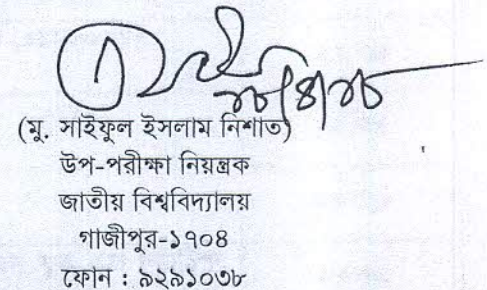 (মু. সাইফুল ইসলাম নিশাত)
উপ-পরীক্ষা নিয়ন্ত্রক
জাতীয় বিশ্ববিদ্যালয়
গাজীপুর-১৭০৪
ফোন : ৯২৯১০৩৮